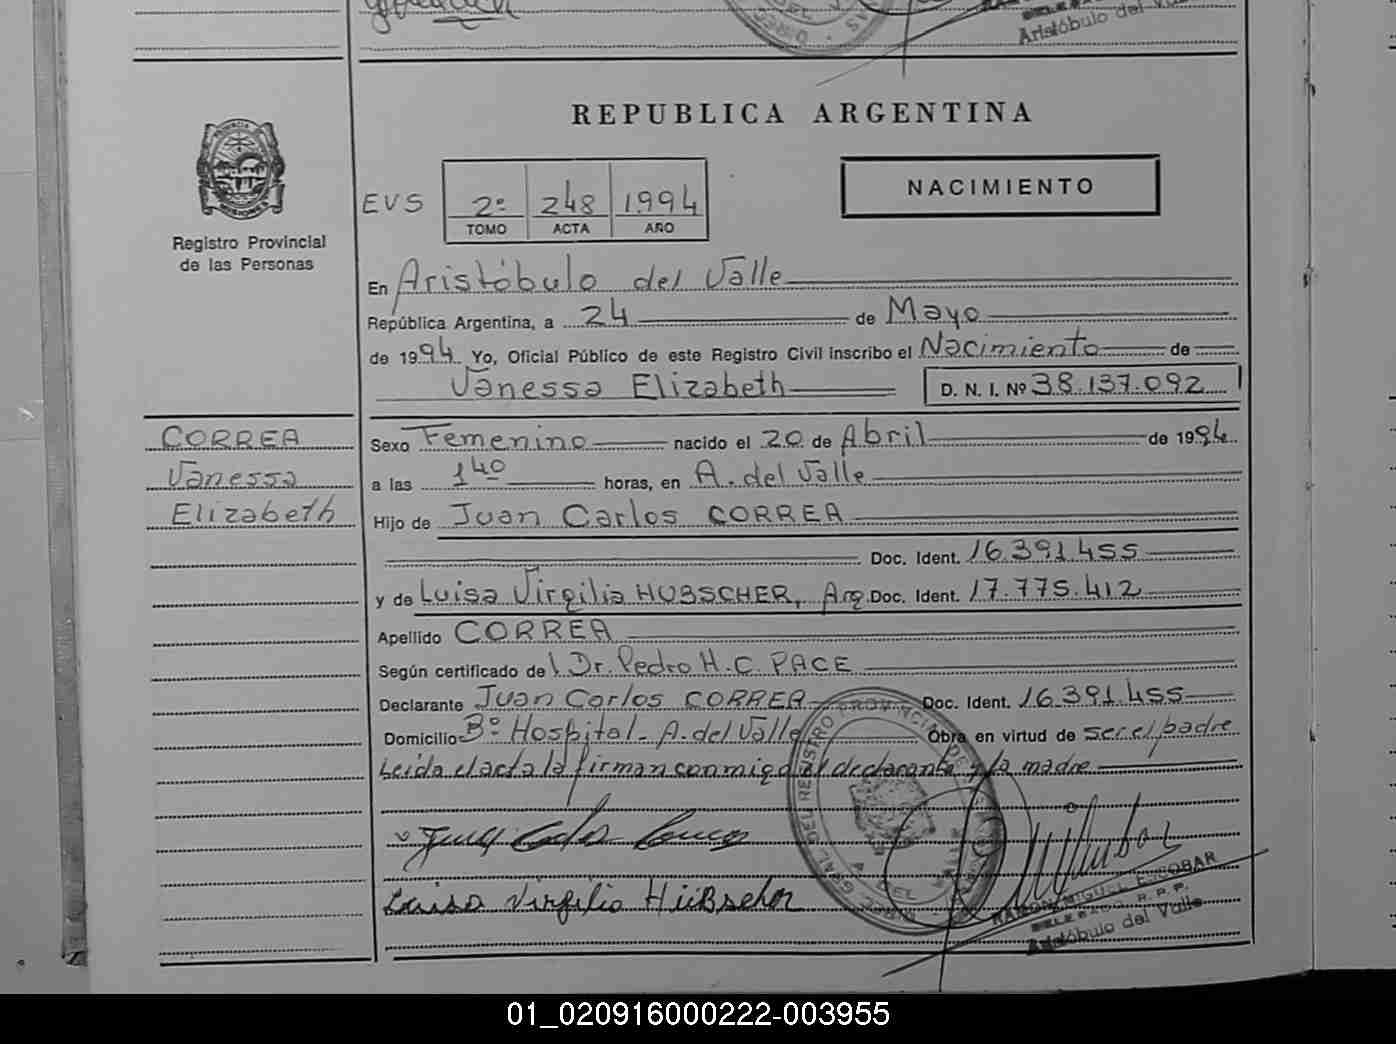 Aristóbulo del Valle
REPUBLICA ARGENTINA
Registro Provincial
de las Personas
EVS 2º 248 1994
TOMO ACTA AÑO
NACIMIENTO
En Aristóbulo del Valle
República Argentina, a 24 de Mayo
de 1994 Yo, Oficial Público de este Registro Civil inscribo el Nacimiento de
Vanessa Elizabeth D. N. I. Nº 38.137.092
CORREA
Vanessa
Elizabeth
Sexo Femenino nacido el 20 de Abril de 1994
a las 1 40 horas, en A. del Valle
Hijo de Juan Carlos CORREA
Doc. Ident. 16.391.455
y de Luisa Virgilia HUBSCHER, Arg. Doc. Ident. 17.775.412
Apellido CORREA
Según certificado del Dr. Pedro H. C. PACE
Declarante Juan Carlos CORREA Doc. Ident. 16.391.455
Domicilio Bº Hospital - A. del Valle Obra en virtud de ser el padre
Leida el acta la firman conmigo el declarante y la madre
Luisa Virgilia Hübscher
RAMON MIGUEL ESCOBAR
Aristóbulo del Valle
01_020916000222-003955